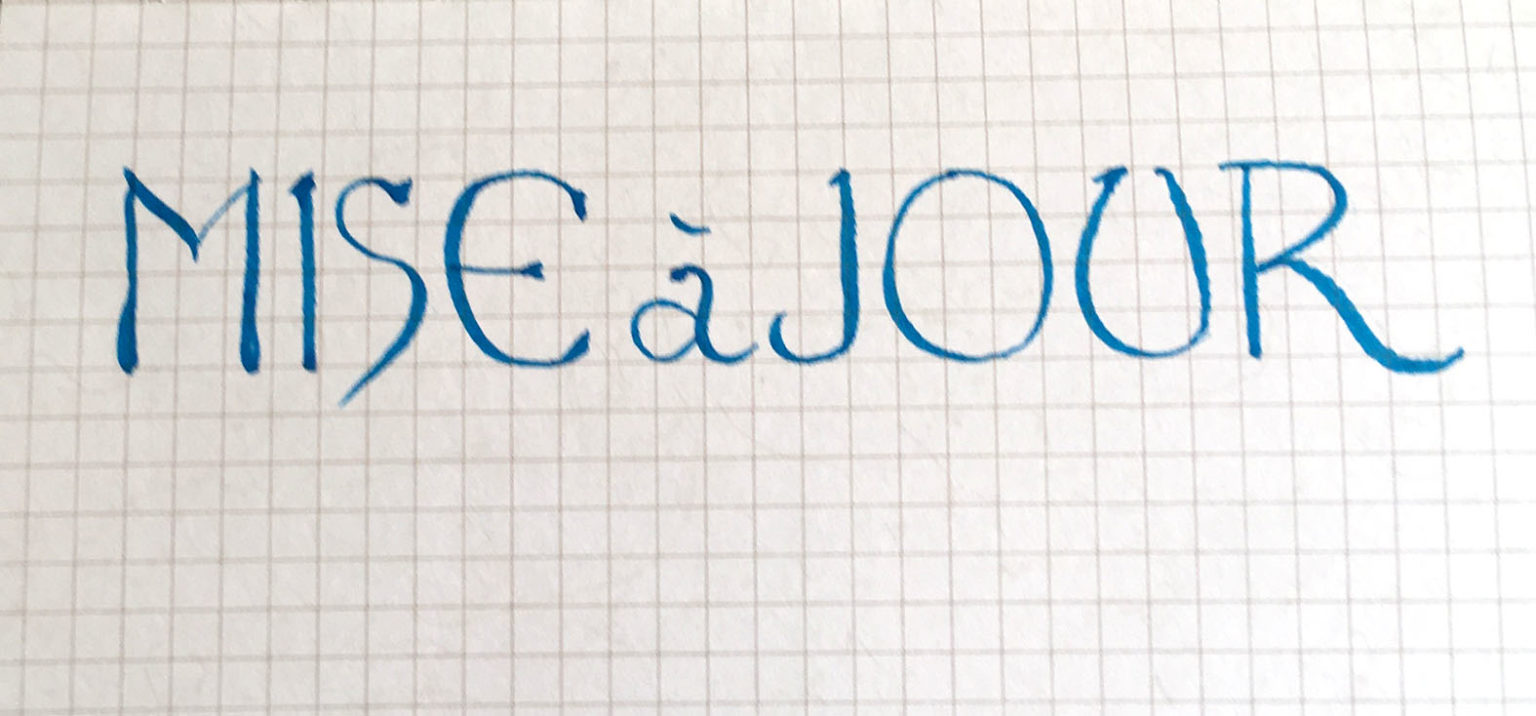 MISE à JOUR